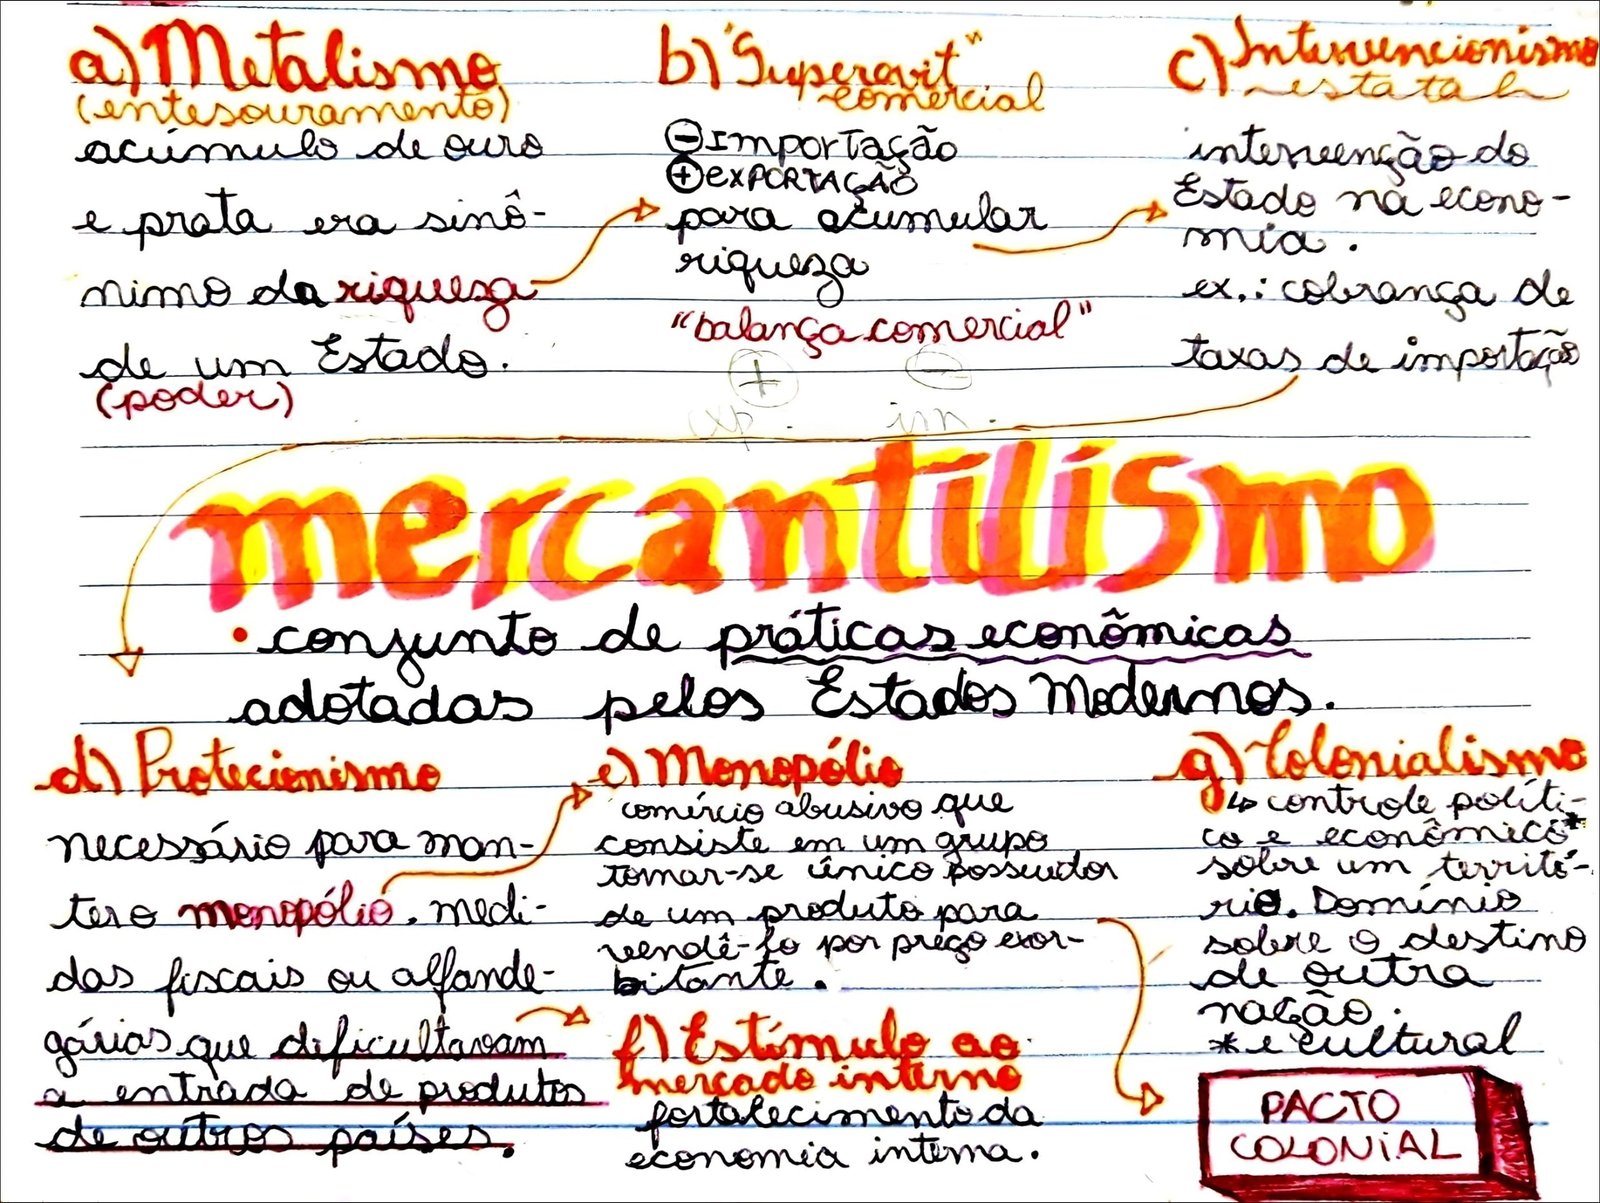 a) Metalismo
(entesouramento)
acúmulo de ouro
e prata era sinô-
nimo da riqueza
de um Estado.
(poder)
b) "Superavit"
comercial
⊖ Importação
⊕ EXPORTAÇÃO
para acumular
riqueza
"balança comercial"
+ -
exp. im.
c) Intervencionismo
estatal
intervenção do
Estado na econo-
mia.
ex.: cobrança de
taxas de importação
mercantilismo
• conjunto de práticas econômicas
adotadas pelos Estados Modernos.
d) Protecionismo
necessário para man-
ter o monopólio. medi-
das fiscais ou alfande-
gárias que dificultavam
a entrada de produtos
de outros países.
e) Monopólio
comércio abusivo que
consiste em um grupo
tornar-se único possuidor
de um produto para
vendê-lo por preço exor-
bitante.
f) Estímulo ao
mercado interno
fortalecimento da
economia interna.
g) Colonialismo
↳ controle políti-
co e econômico*
sobre um territó-
rio. Domínio
sobre o destino
de outra
nação.
* e cultural
PACTO
COLONIAL